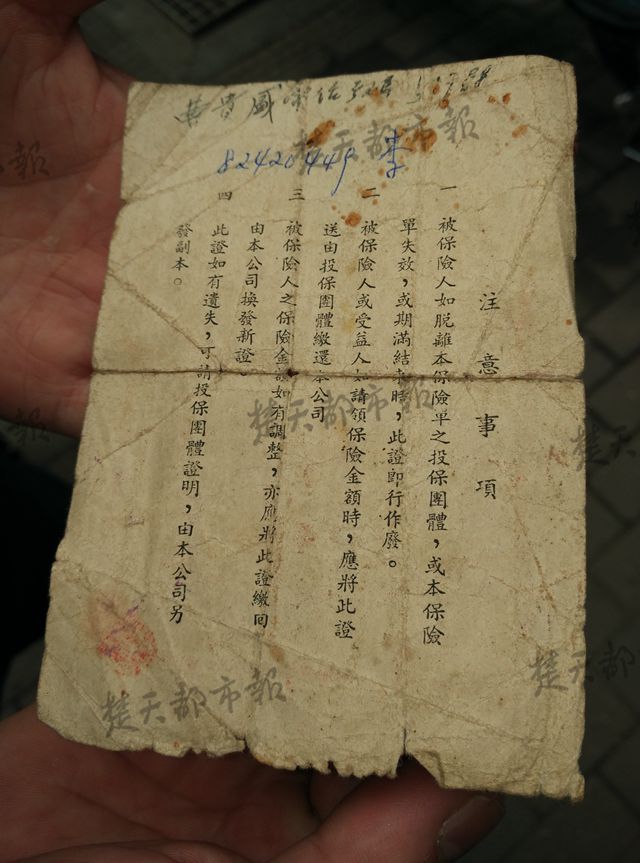 82420449 李
注意事項
一 被保險人如脫離本保險單之投保團體，或本保險
單失效，或期滿結束時，此證即行作廢。
二 被保險人或受益人如請領保險金額時，應將此證
送由投保團體繳還本公司
三 被保險人之保險金額如有調整，亦應將此證繳回
由本公司換發新證。
四 此證如有遺失，可請投保團體證明，由本公司另
發副本。
楚天都市報
楚天都市報
楚天都市報
楚天都市報